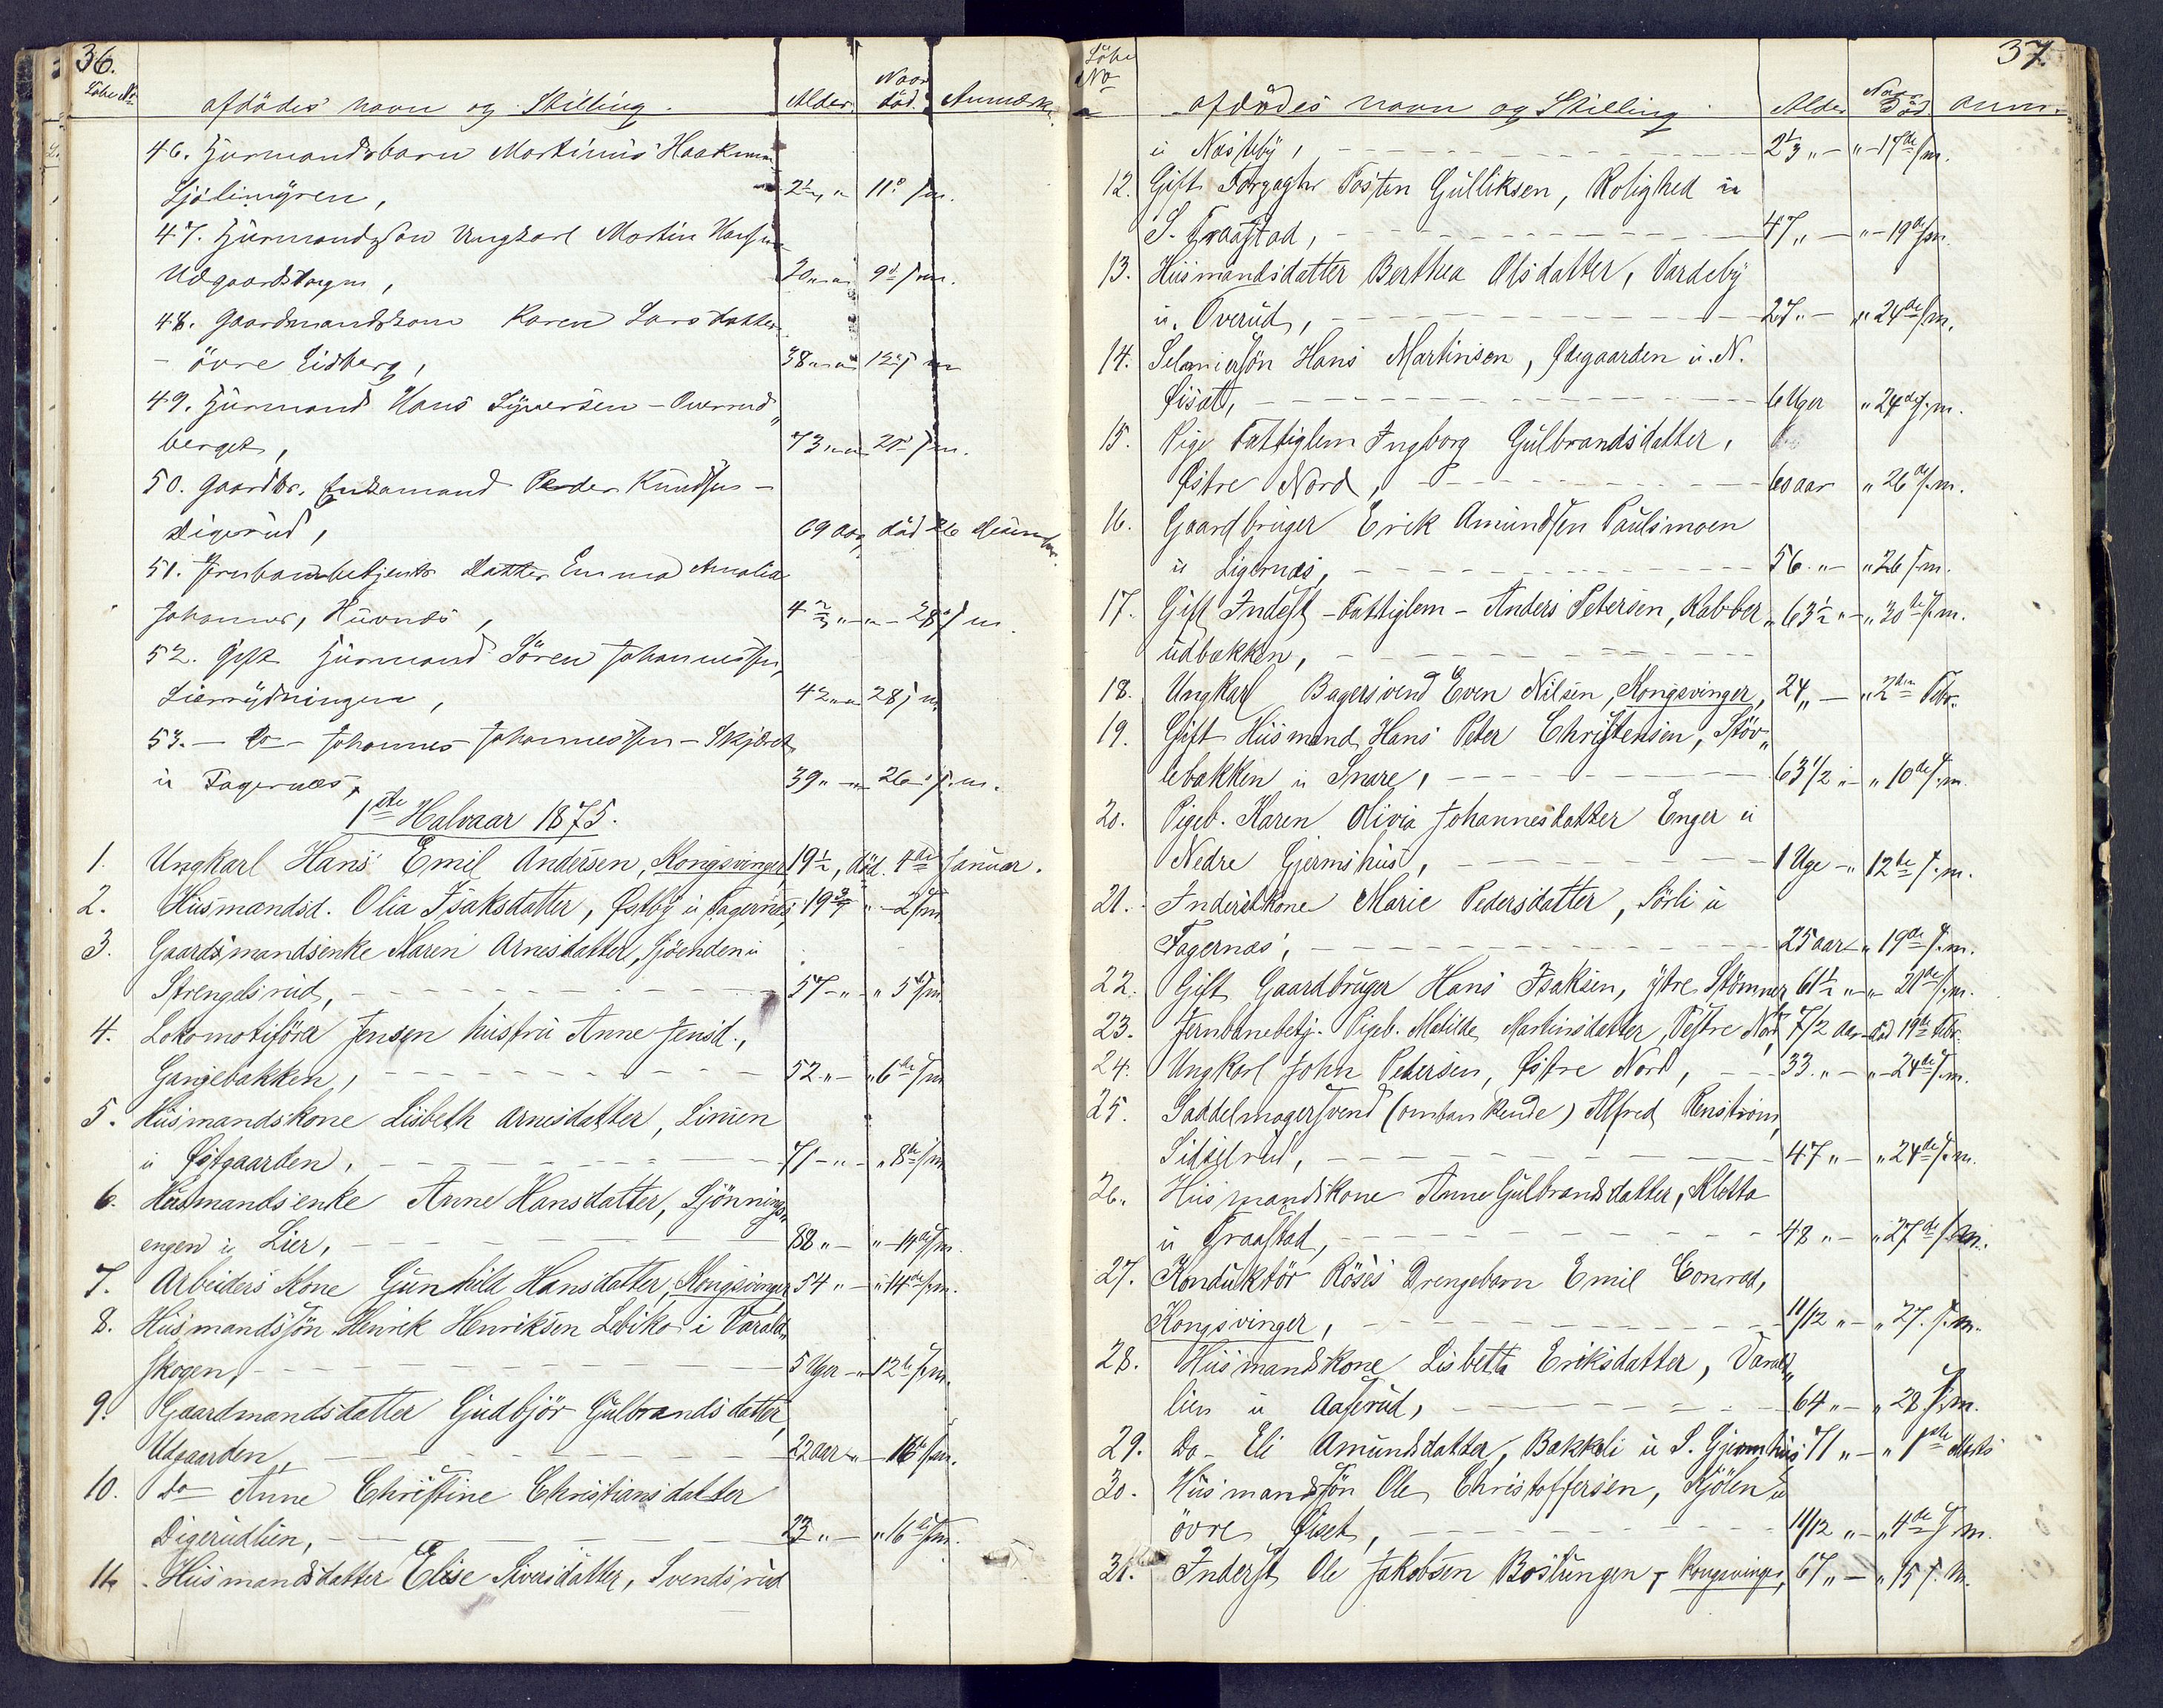 36.
Löbe No afdödes navn og Stilling. Alder. Naar död. Anmærk.
46. Husmandsbarn Martinius Haaken
Sjölimyren, 2½ " 11te s.m.
47. Husmandssön Ungkarl Martin Hansen
Udgaardstorpen, 20 " 9de s.m.
48. Gaardmandskone Karen Larsdatter
- övre Eidberg, 38 " 12te s.m.
49. Husmand Hans Syversen - Overud„
berget, 73 " 21de s.m.
50. Gaardbr. Enkemand Peder Knudsen -
Digerud, 69 aar, död 26 Decembr.
51. Jernbanebetjents Datter Emma Amalia
Johannes, " - 28de s.m.
52. Gift Husmand Sören Johannessen,
Lierrydningen, 42 " 28 s.m.
53. - Do - Johannes Johannessen - Skjæret
u Fagernæs, 39 " - " 26 s.m.
1ste Halvaar 1875.
1. Ungkarl Hans Emil Andersen, Kongsvinger, 19½, död. 4de Januar.
2. Husmandsd. Olia Isaksdatter, Østby u Fagernæs, 19 " - 2 s.m
3. Gaardsmandsenke Maren Arnesdatter, Sjöenden u
Strengelsrud, 57 - " - " 5te s.m
4. Lokomotiförer Jensen hustru Anne Jensd.,
Ganjebakken, 52. " - " 6te s.m
5. Husmandskone Lisbeth Arnesdatter, Linien
u Østgaarden, 71 - " - " 8de s.m
6. Husmandsenke Anne Hansdatter, Sjönnings„
engen u Lier, 88 " - " - 14de s.m.
7. Arbeiders Kone Gunhild Hansdatter, Kongsvinger 54 " - " 14de s.m.
8. Husmandssön Henrik Henriksen Lebiko i Varald„
skogen, 5 Uger - " 12te s.m.
9. Gaardmandsdatter Gudbjör Gulbrandsdatter,
Udgaarden, 22 aar " - 16de s.m.
10. Do Anne Christine Christiansdatter
Digerudlien, 23 " - " 16de s.m.
11. Husmandsdatter Elise Siversdatter, Svendsrud
37.
Löbe No afdödes navn og Stilling. Alder Naar Död. anm.
u Næsteby, 2⅓ " - " - 17de s.m.
12. Gift Forgagter Tosten Gulliksen, Rolighed u
S. Graastad, 47 " - " - 19de s.m.
13. Husmandsdatter Berthea Olsdatter, Vardeby
u. Overud, 27. " - " 24de s.m.
14. Selveiersön Hans Martinsen, Ødegaarden u. N.
Øisæt, 6 Uger " 24de s.m.
15. Pige Fattiglem Ingborg Gulbrandsdatter,
Østre Nord, 60 aar " 26de s.m.
16. Gaardbruger Erik Amundsen Paulsmoen
u Ligernæs, 56. " - " 26 s.m.
17. Gift Inderst - Fattiglem - Anders Petersen, Rabber„ 63½ " - " 30te s.m.
udbakken,
18. Ungkarl Bagersvend Even Nilsen, Kongsvinger, 24 " - " 2den Febr.
19. Gift Husmand Hans Peter Christensen, Stöv„
lebakken u Snare, 63½ " - " 10de s.m.
20. Pigeb. Karen Olivia Johannesdatter Enger u
Nedre Gjermshus, 1 Uge - " 12te s.m.
21. Inderstkone Marie Pedersdatter, Sörli u
Fagernæs, 25 aar - " 19de s.m.
22. Gift Gaardbruger Hans Isaksen, ystre Stömner 61½ " - " 21de s.m.
23. Jernbanebetj. Pigeb. Matilde Martinsdatter, Vestre Nord, 7/2 aar - död 19de Febr.
24. Ungkarl John Petersen, Østre Nord, 33. " - " - 24de s.m.
25. Saddelmagersvend (omvankende) Alfred Renström,
Sidselrud, 47 " - " 24de s.m.
26. Husmandskone Anne Gulbrandsdatter, Kletta
u Graastad, 48 " - " 27de s.m.
27. Konduktör Röses Drengebarn Emil Conrad,
Kongsvinger, 11/12 " - " 27. s.m.
28. Husmandskone Lisbetta Eriksdatter, Varald„
lien u Aaserud, 64 " - " 28 s.m.
29. Do - Eli Amundsdatter, Bakkeli u S. Gjermshus 71 " - " 1ste Marts
30. Husmandssön Ole Christoffersen, Kjölen u
övre Øiset, 11/12 " - " 4de s.m.
31. Inderst Ole Jakobsen Böslungen, Kongsvinger, 67 " - " 15 s.m.